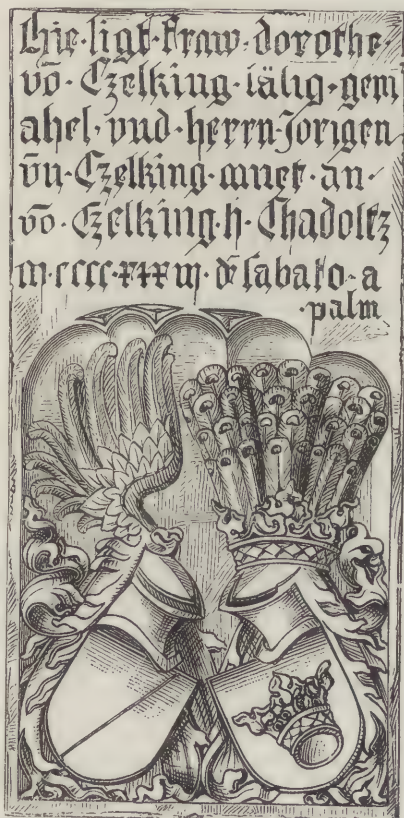 Hie·ligt·fraw·dorothe·
võ·Czelking·sälig·gem
ahel·vnd·herrn·Jorigen
vñ·Czelking·muet·an·
võ·Czelking·h·Chadoltz
m·cccc·xxx·iii·dẽ·sabato·a
·palm